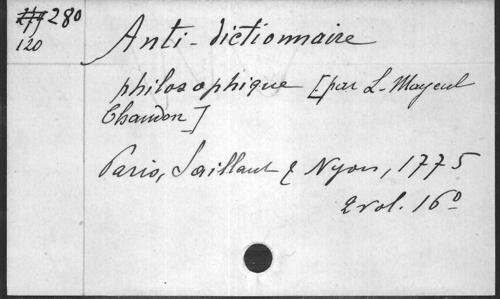 280
120
Anti-dictionnaire
philosophique [par L-Mayeul
Chaudon]
Paris, Saillant & Nyon, 1775
2 vol. 16º